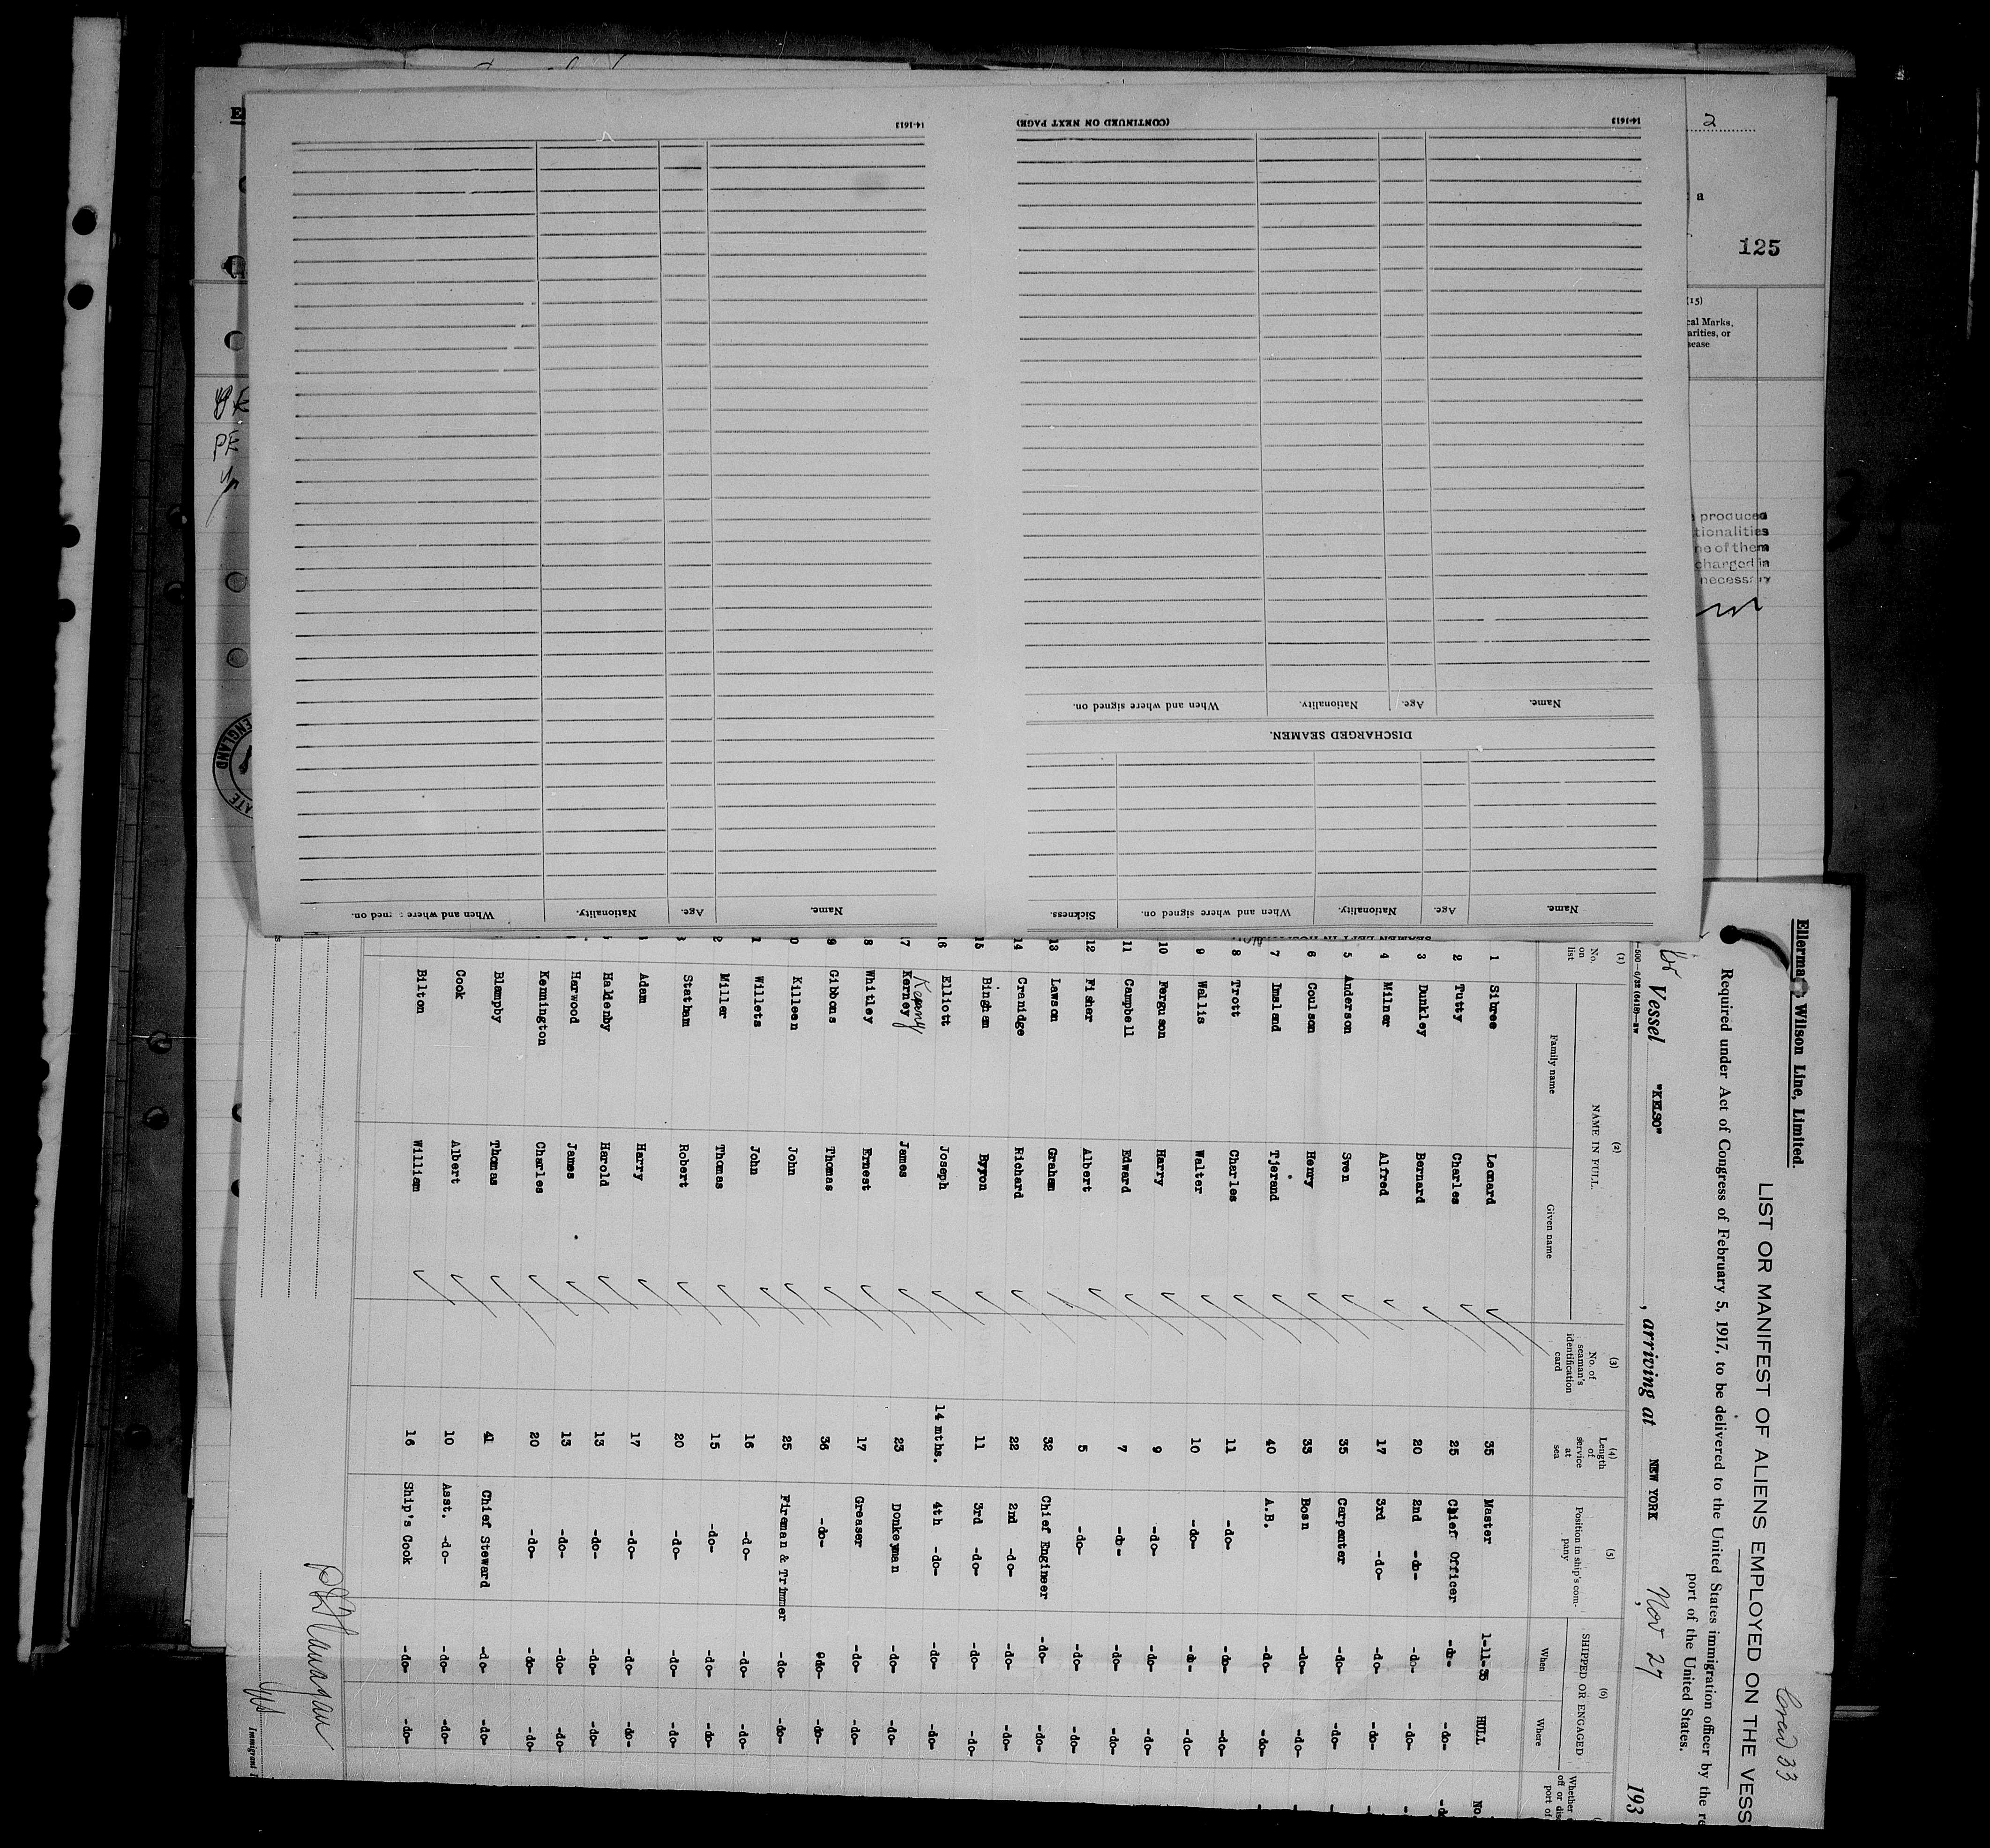 14-1613
(CONTINUED ON NEXT PAGE)
14-1613
Name. Age. Nationality. When and where signed on.
DISCHARGED SEAMEN.
Name. Age. Nationality. When and where signed on. Sickness.
Name. Age. Nationality. When and where signed on.
2
a
125
(15)
cal Marks,
arities, or
sease
produced
tionalities
ne of them
charged in
necessary
PE
ENGLAND
Ellerman's Wilson Line, Limited.
Crew 33
LIST OR MANIFEST OF ALIENS EMPLOYED ON THE VESS
Required under Act of Congress of February 5, 1917, to be delivered to the United States immigration officer by the re
port of the United States.
br Vessel "KELSO" , arriving at NEW YORK Nov 27, 193
(1) (2) (3) (4) (5) (6)
No. on list
NAME IN FULL
Family name Given name
No. of seaman's identification card
Length of service at sea
Position in ship's company
SHIPPED OR ENGAGED
When Where
Whether
off or dis
port of
1 Sibree Leonard 35 Master 1-11-35 HULL No.
2 Tutty Charles 25 Chief Officer -do- -do- -do
3 Dunkley Bernard 20 2nd -do- -do- -do-
4 Milner Alfred 17 3rd -do- -do- -do-
5 Anderson Sven 35 Carpenter -do- -do-
6 Coulson Henry 33 Bosn -do- -do-
7 Imsland Tjerand 40 A.B. -do- -do-
8 Trott Charles 11 -do- -do- -do-
9 Wallis Walter 10 -do- -do- -do-
10 Ferguson Harry 9 -do- -do- -do-
11 Campbell Edward 7 -do- -do- -do-
12 Fisher Albert 5 -do- -do- -do-
13 Lawson Graham 32 Chief Engineer -do- -do-
14 Cranidge Richard 22 2nd -do- -do- -do-
15 Bingham Byron 11 3rd -do- -do- -do-
16 Elliott Joseph 14 mths. 4th -do- -do- -do-
17 Kerney James 23 Donkeyman -do- -do-
8 Whitley Ernest 17 Greaser -do- -do-
9 Gibbons Thomas 36 -do- -do- -do-
0 Killeen John 25 Fireman & Trimmer -do- -do-
1 Willets John 16 -do- -do- -do-
2 Miller Thomas 15 -do- -do- -do-
3 Statham Robert 20 -do- -do- -do-
Adam Harry 17 -do- -do- -do-
Haldenby Harold 13 -do- -do- -do-
Harwood James 13 -do- -do- -do-
Kennington Charles 20 -do- -do- -do-
Blampby Thomas 41 Chief Steward -do- -do-
Cook Albert 10 Asst. -do- -do- -do-
Bilton William 16 Ship's Cook -do- -do-
Immigrant